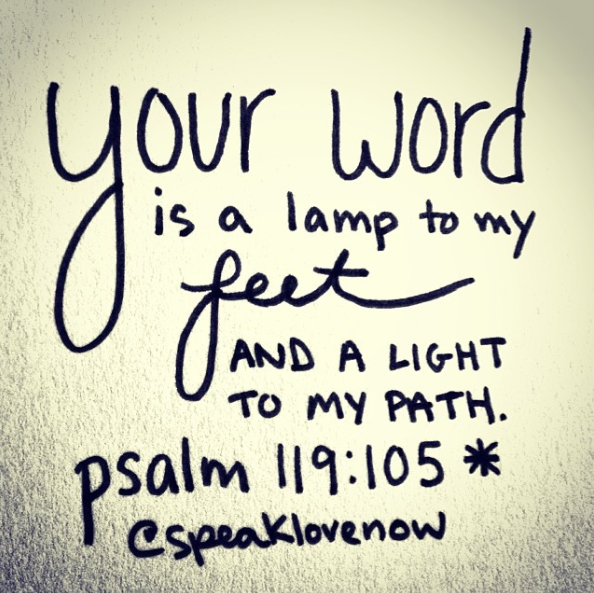 your word
is a lamp to my
feet
AND A LIGHT
TO MY PATH.
psalm 119:105 *
@speaklovenow